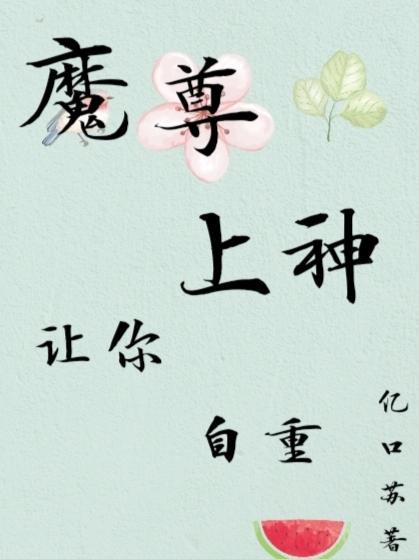 魔尊
上神
让你
自重
亿口苏著